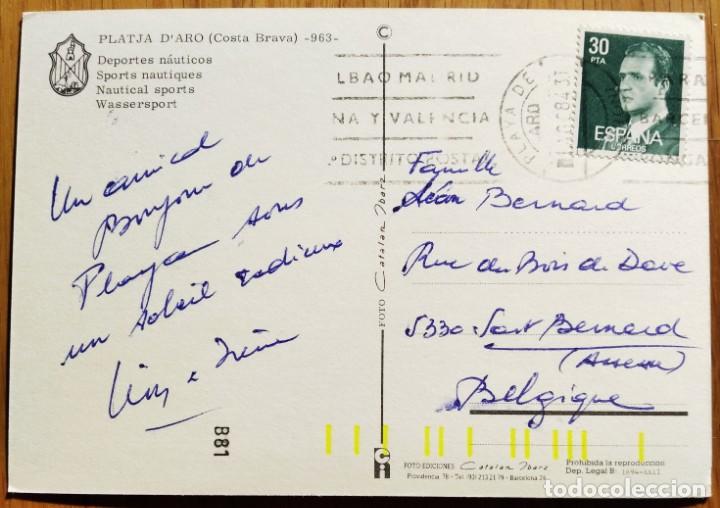 PLATJA D'ARO (Costa Brava) -963-
Deportes náuticos
Sports nautiques
Nautical sports
Wassersport
LBAO MADRID
NA Y VALENCIA
º DISTRITO POSTAL
PLAYA DE
ARO
84
30
PTA
ESPAÑA
CORREOS
PARA
BARCEL
Un amical
Bonjour de
Playa sous
un soleil radieux
Famille
Léon Bernard
Rue du Bois de Dave
5330 Sart Bernard
(Assesse)
Belgique
FOTO Catalan Ibarz
B81
FOTO EDICIONES Catalan Ibarz
Providencia 76 - Tel. (93) 213 21 79 - Barcelona 24
Prohibida la reproducción
Dep. Legal B.
todocoleccion